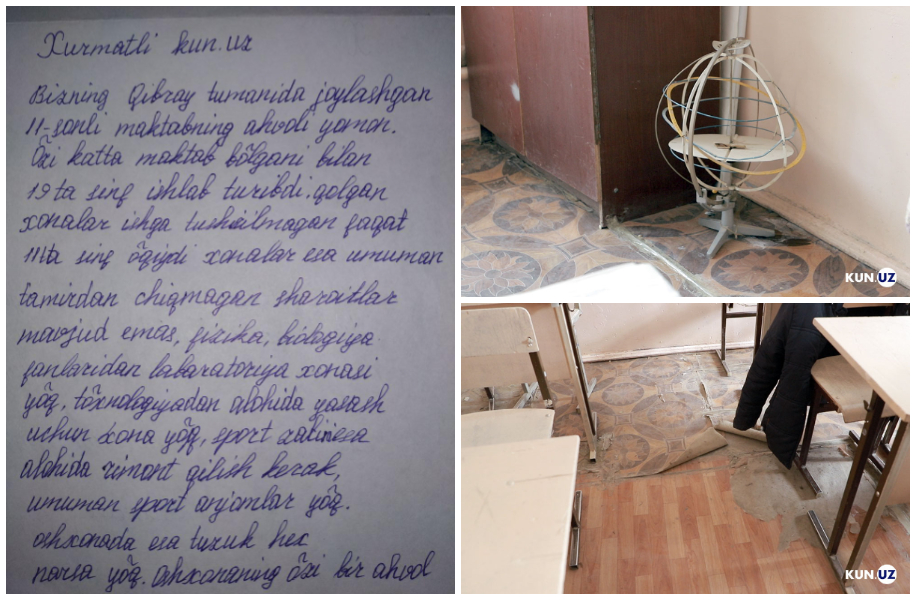 Xurmatli kun.uz
Bizning Qibray tumanida joylashgan
11-sonli maktabning ahvoli yomon.
Õzi katta maktab bõlgani bilan
19 ta sinf ishlab turibdi. qolgan
xonalar ishga tushirilmagan faqat
11ta sinf õqiydi xonalar esa umuman
tamirdan chiqmagan sharoitlar
mavjud emas, fizika, biologiya
fanlaridan labaratoriya xonasi
yõq, texnologiyadan alohida yasash
uchun xona yõq, sport zalinesa
alohida rimont qilish kerak,
umuman sport anjomlar yõq.
oshxonada esa tuzuk hec
narsa yõq. Oshxonaning õzi bir ahvol
KUN.UZ
KUN.UZ